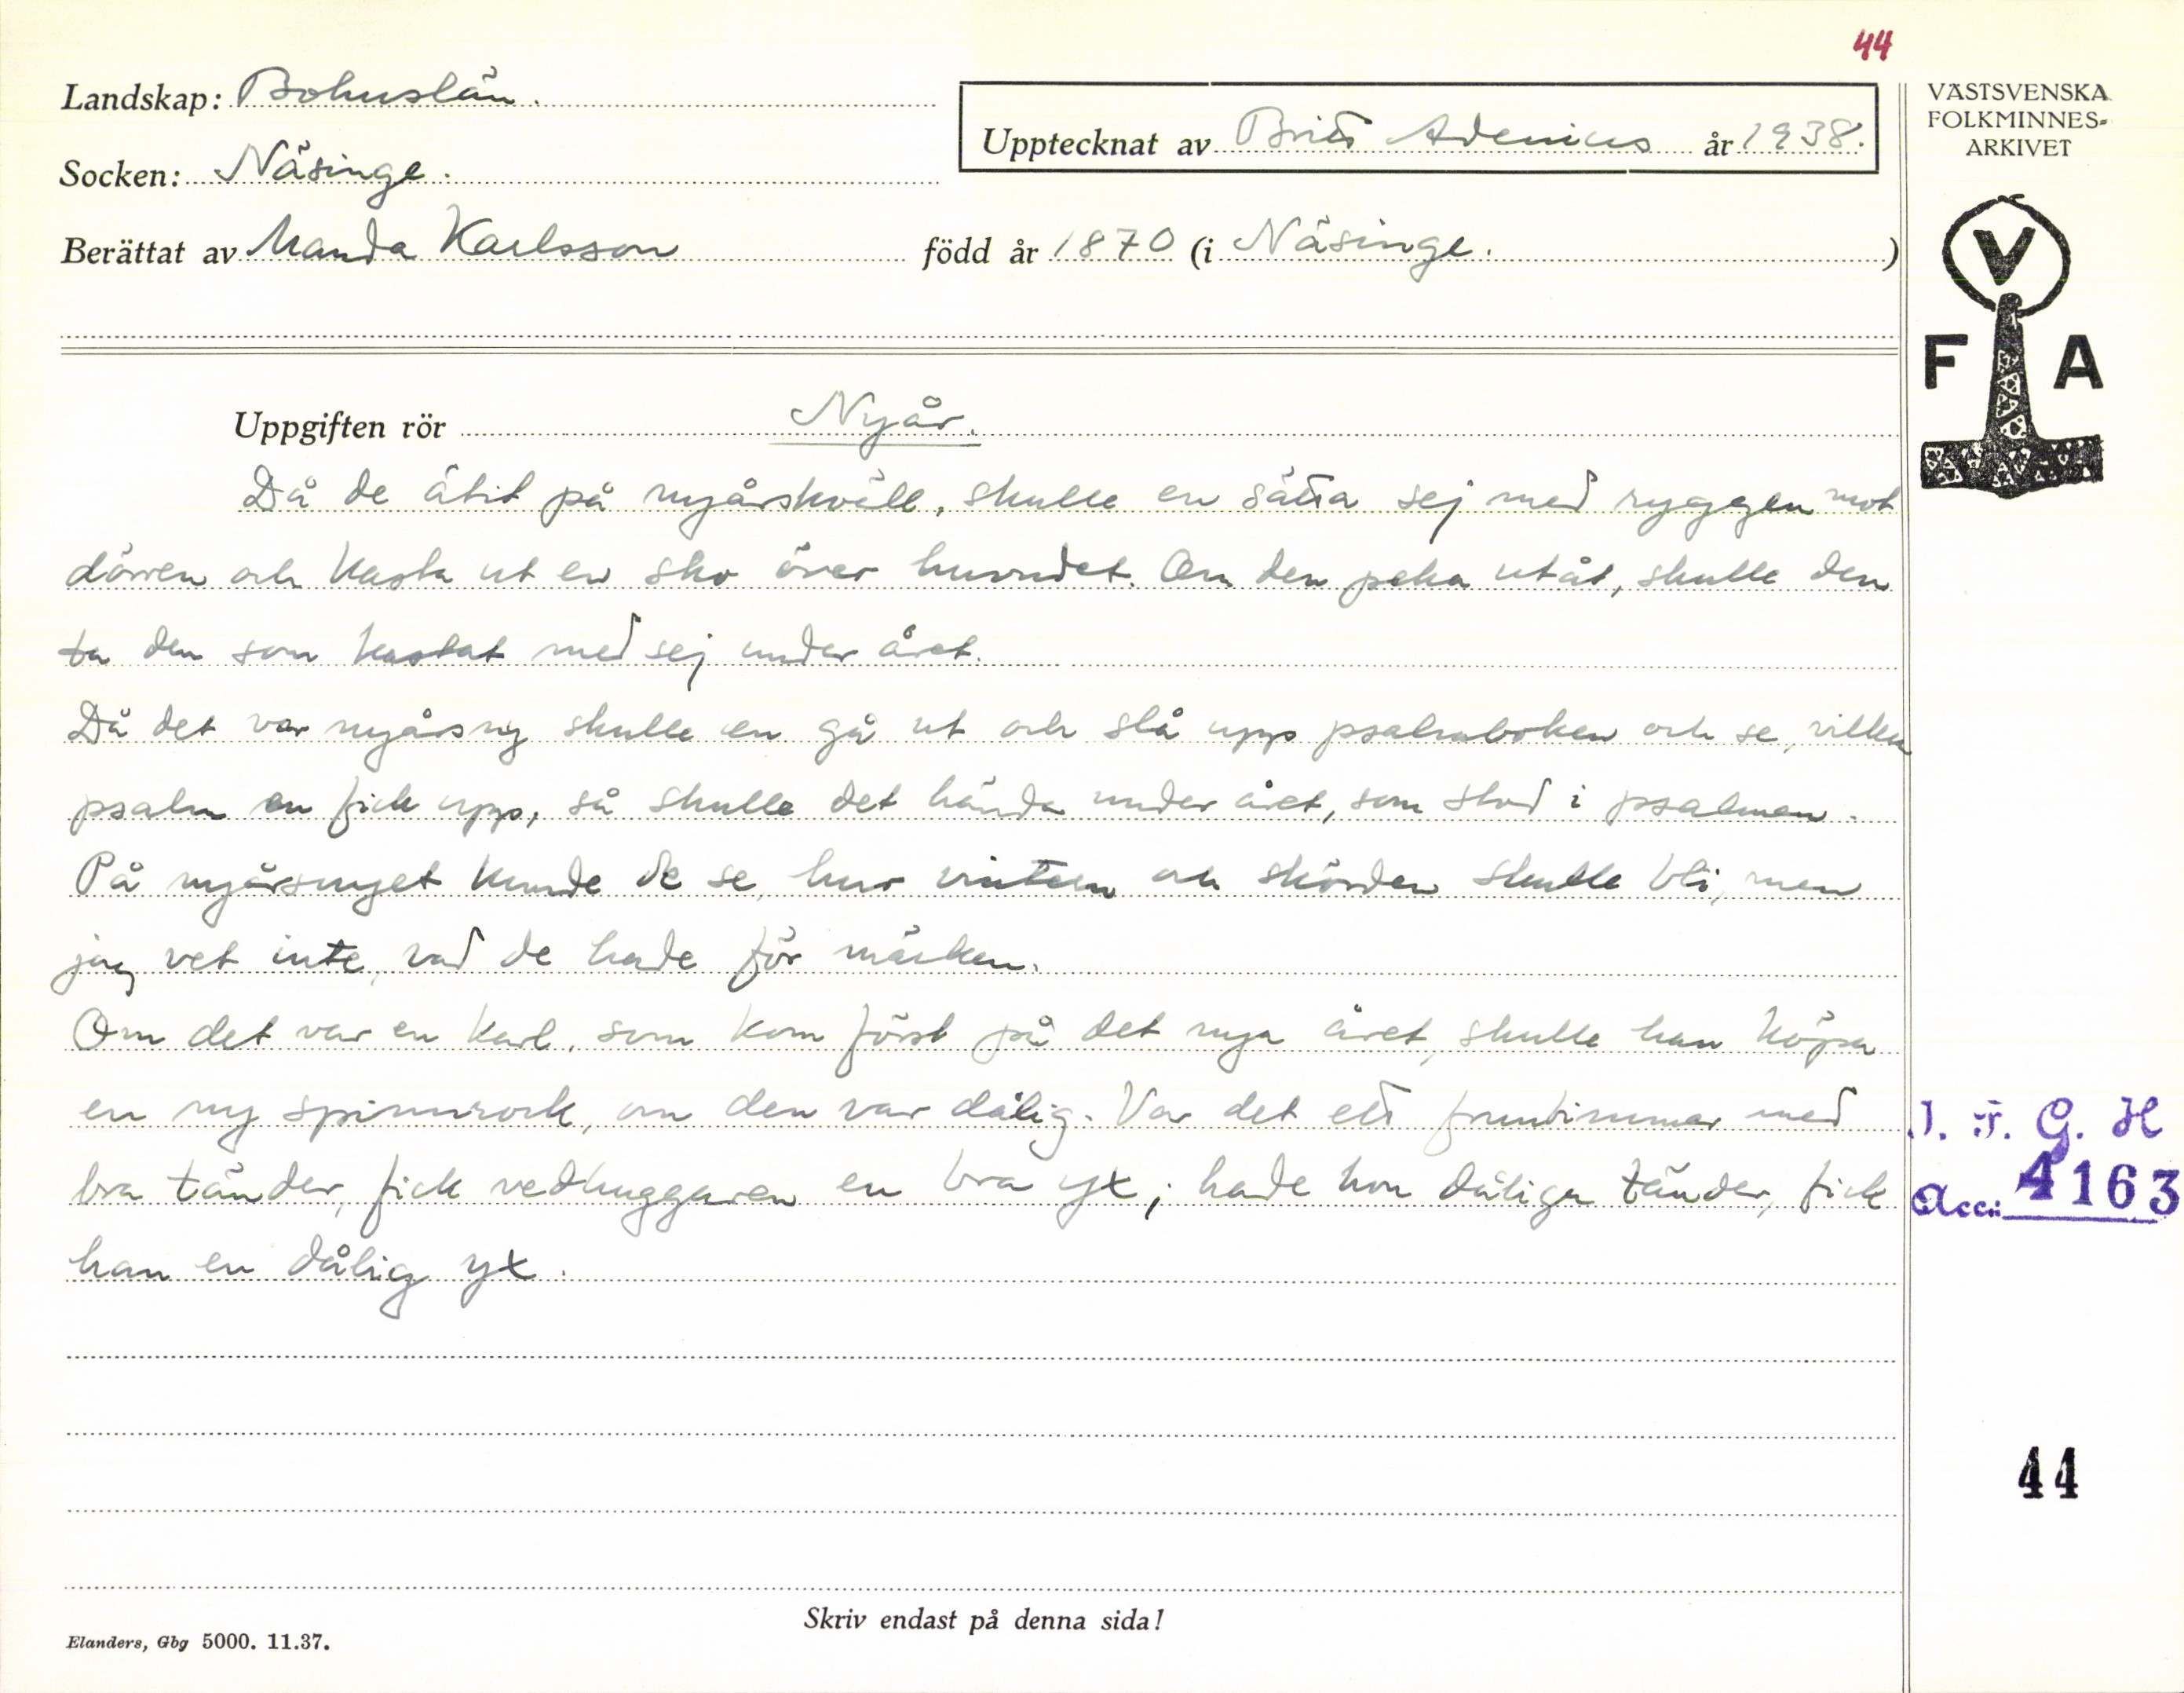 44
Landskap: Bohuslän.
Upptecknat av Britt Adenius år 1938.
VÄSTSVENSKA
FOLKMINNES-
ARKIVET
Socken: Näsinge.
Berättat av Manda Karlsson född år 1870 (i Näsinge.)
V
F A
Uppgiften rör Nyår.
Då de ätit på nyårskväll, skulle en sätta sej med ryggen mot
dörren och kasta ut en sko över huvudet. Om den peka utåt, skulle den
ta den som kastat med sej under året.
Då det var nyårsny skulle en gå ut och slå upp psalmboken och se, vilken
psalm en fick upp, så skulle det hända under året, som stod i psalmen.
På nyårsnyet kunde de se, hur vintern och skörden skulle bli, men
jag vet inte, vad de hade för märken.
Om det var en karl, som kom först på det nya året, skulle han köpa
en ny spinnrock, om den var dålig. Var det ett fruntimmer med
bra tänder, fick vedhuggaren en bra yx; hade hon dåliga tänder, fick
han en dålig yx.
I. F. G. H
Acc: 4163
44
Skriv endast på denna sida!
Elanders, Gbg 5000. 11.37.